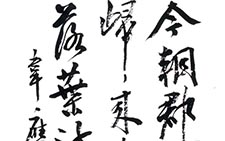 今朝郡
歸來
落葉
韋應